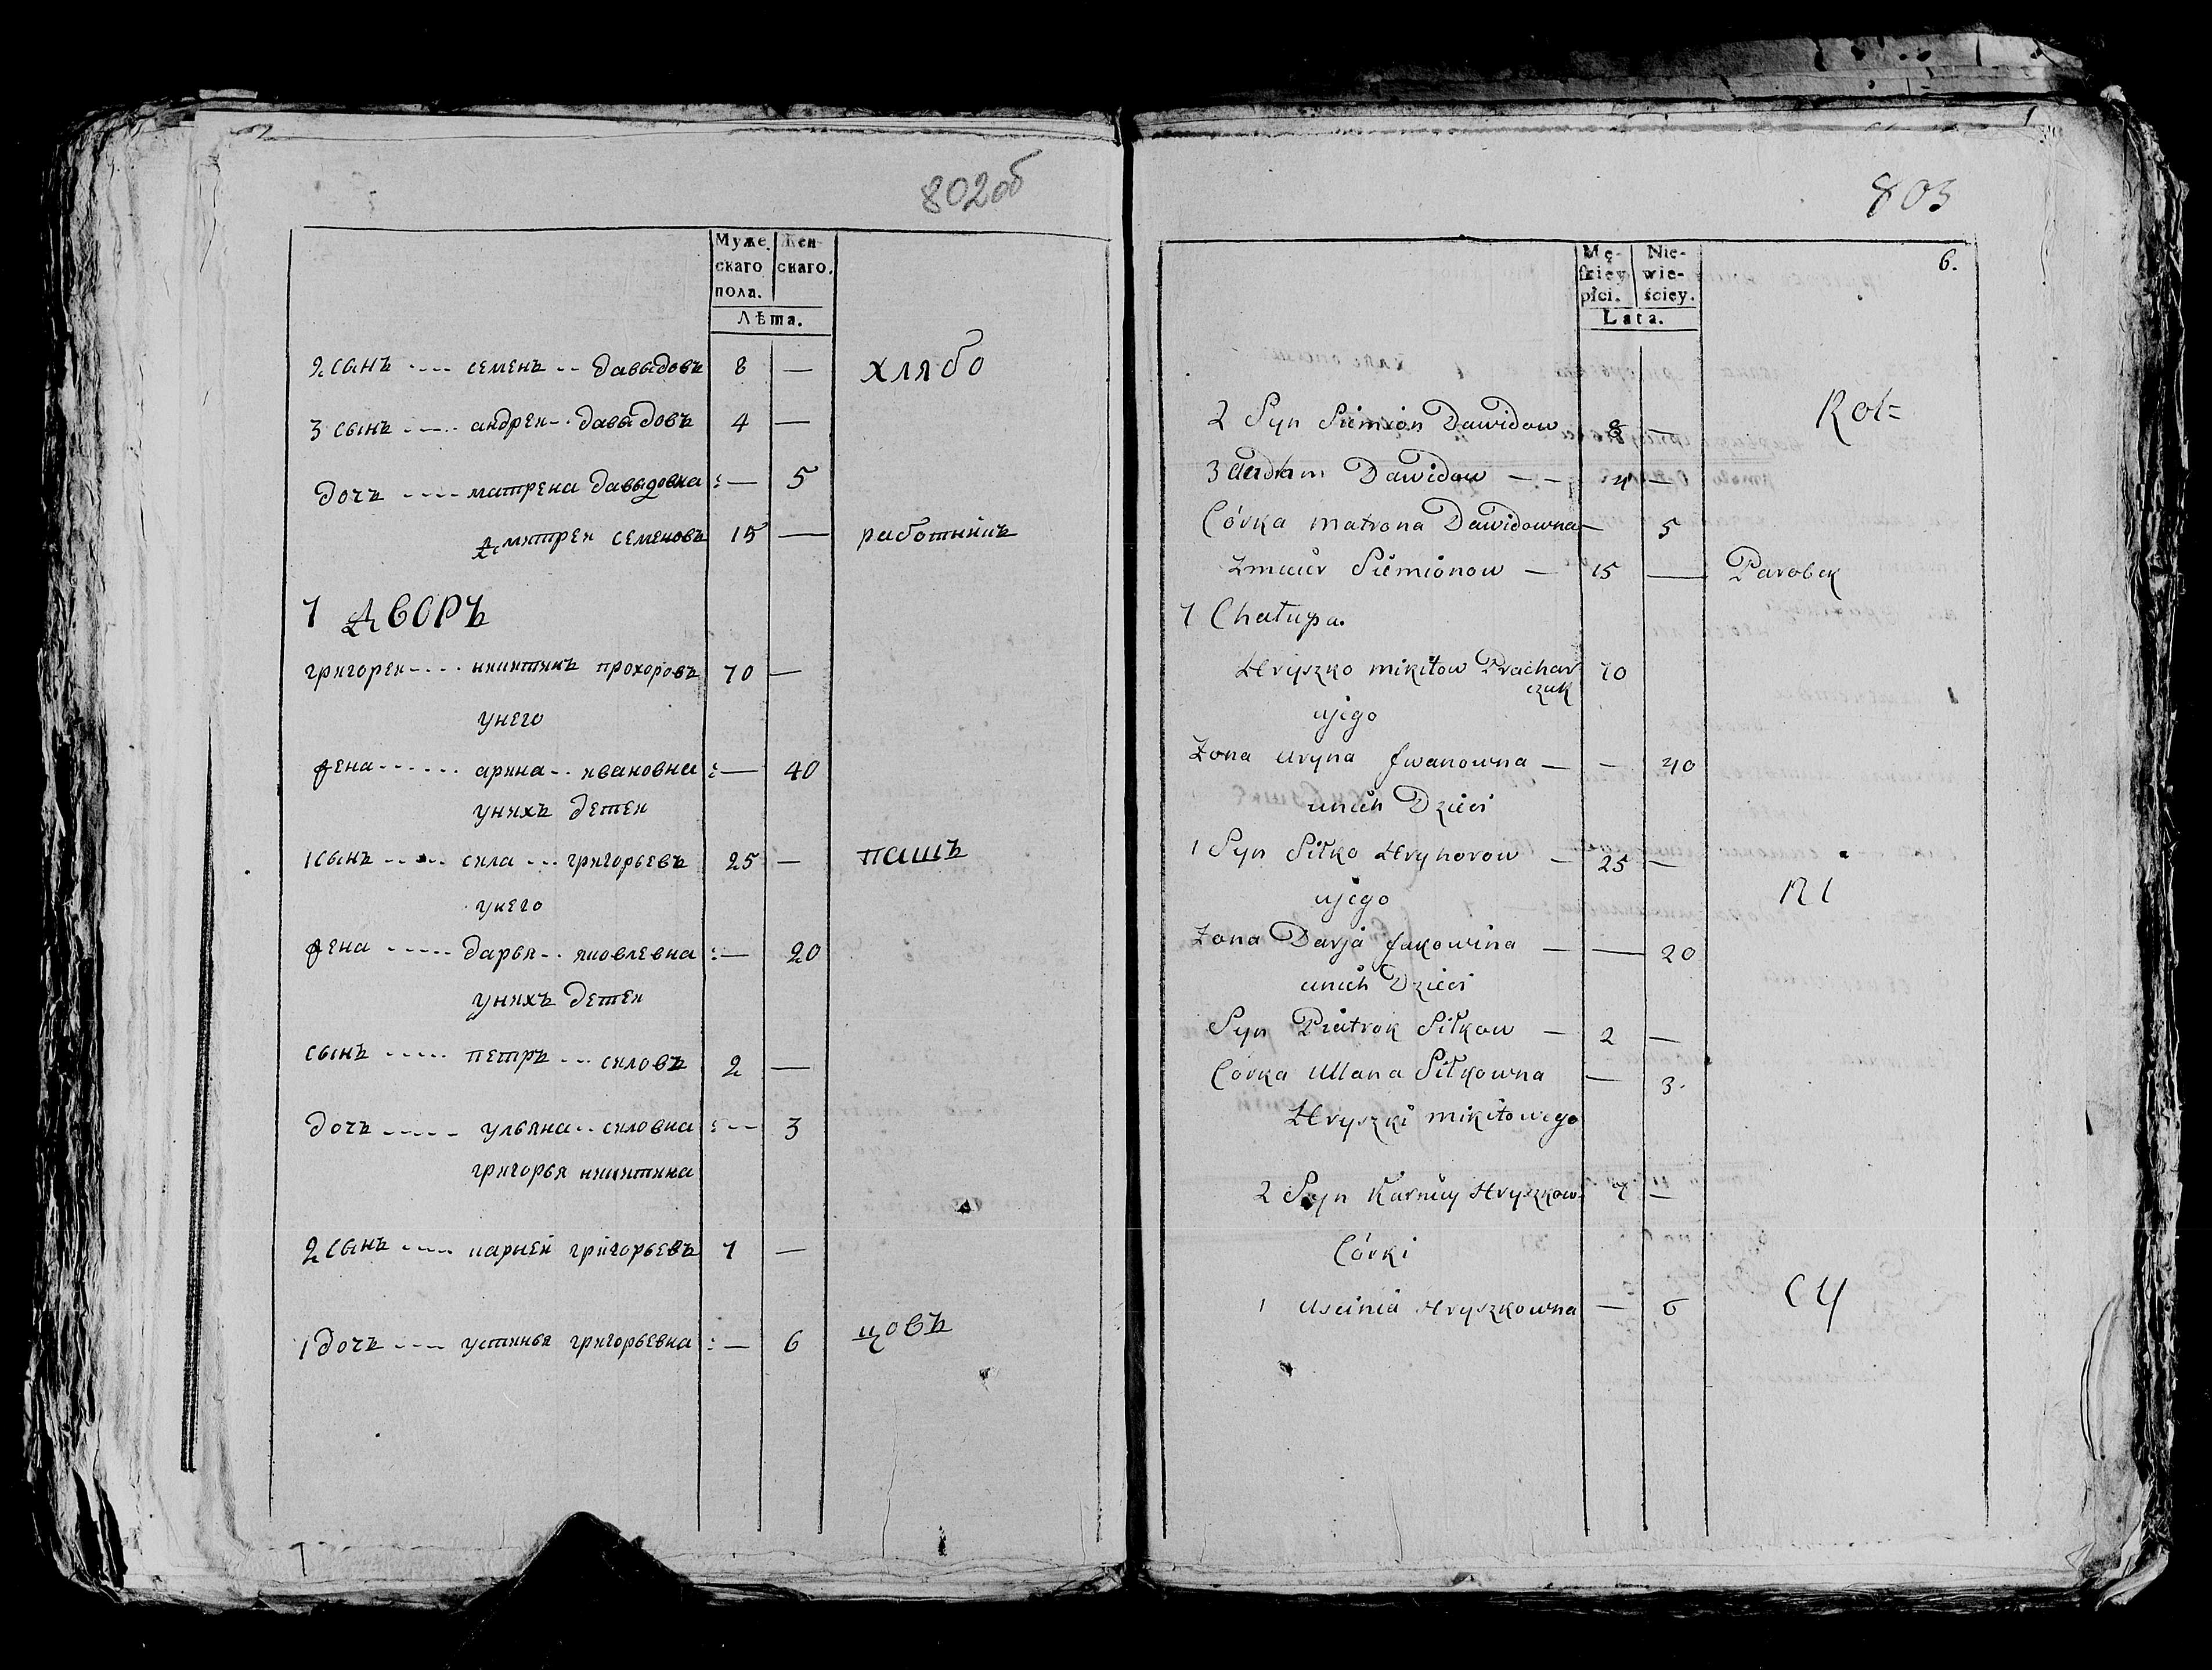 802об
Муже скаго пола. Жен скаго.
Лѣта.
2 сынъ семенъ давыдовъ 8 — хлябо
3 сынъ андреи давыдовъ 4 —
дочь матрена давыдовна :— 5
дмитреи семеновъ 15 — работникъ
7 дворъ
григореи никитинъ прохоровъ 70 —
унего
жена арина ивановна :— 40
унихъ детеи
1 сынъ сила григорьевъ 25 — пашъ
унего
жена дарья яковлевна :— 20
унихъ детеи
сынъ петръ силовъ 2 —
дочь ульяна силовна :— 3
григорья никитина
2 сынъ карнеи григорьевъ 7 —
1 дочь устинья григорьевна :— 6 цовъ
803
6.
Mę- skiey płci. Nie- wie- ściey.
Lata.
2 Syn Siemion Dawidow 8 — Rol=
3 Dawidow — 4 —
Córka Matrona Dawidowna — 5
Zmicier Siemionow — 15 — Parobek
7 Chałupa.
Hryszko Mikitow Prachar 70
czuk
ujego
Zona Aryna Jwanowna — — 40
unich Dzieci
1 Syn Siłko Hryhorow — 25 —
ujego ni
Zona Darja Jakowina — — 20
unich Dzieci
Syn Piatrok Siłkow — 2 —
Corka Ullana Siłkowna — 3.
Hryszki Mikitowego
2 Syn Karniey Hryszkow 7 —
Córki
1 Uscinia Hryszkowna — 6 cy